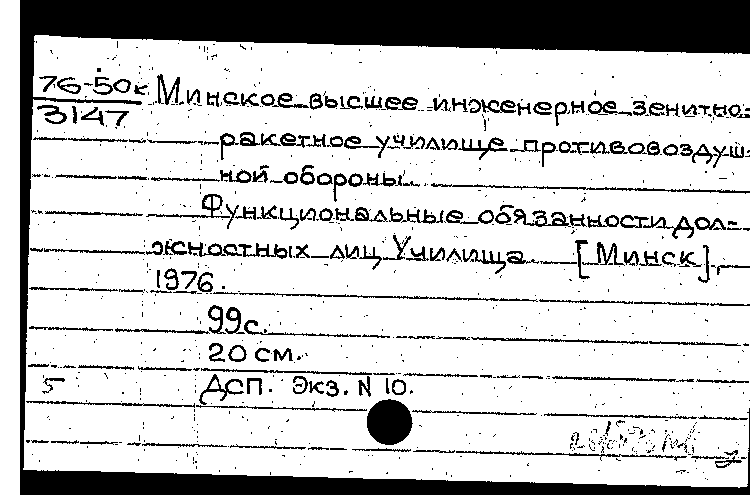 76-50к Минское высшее инженерное зенитно-
3147
ракетное училище противовоздуш-
ной обороны.
Функциональные обязанности дол-
жностных лиц Училища. [Минск],
1976.
99с.
20 см.
5 ДСП. Экз. N 10.